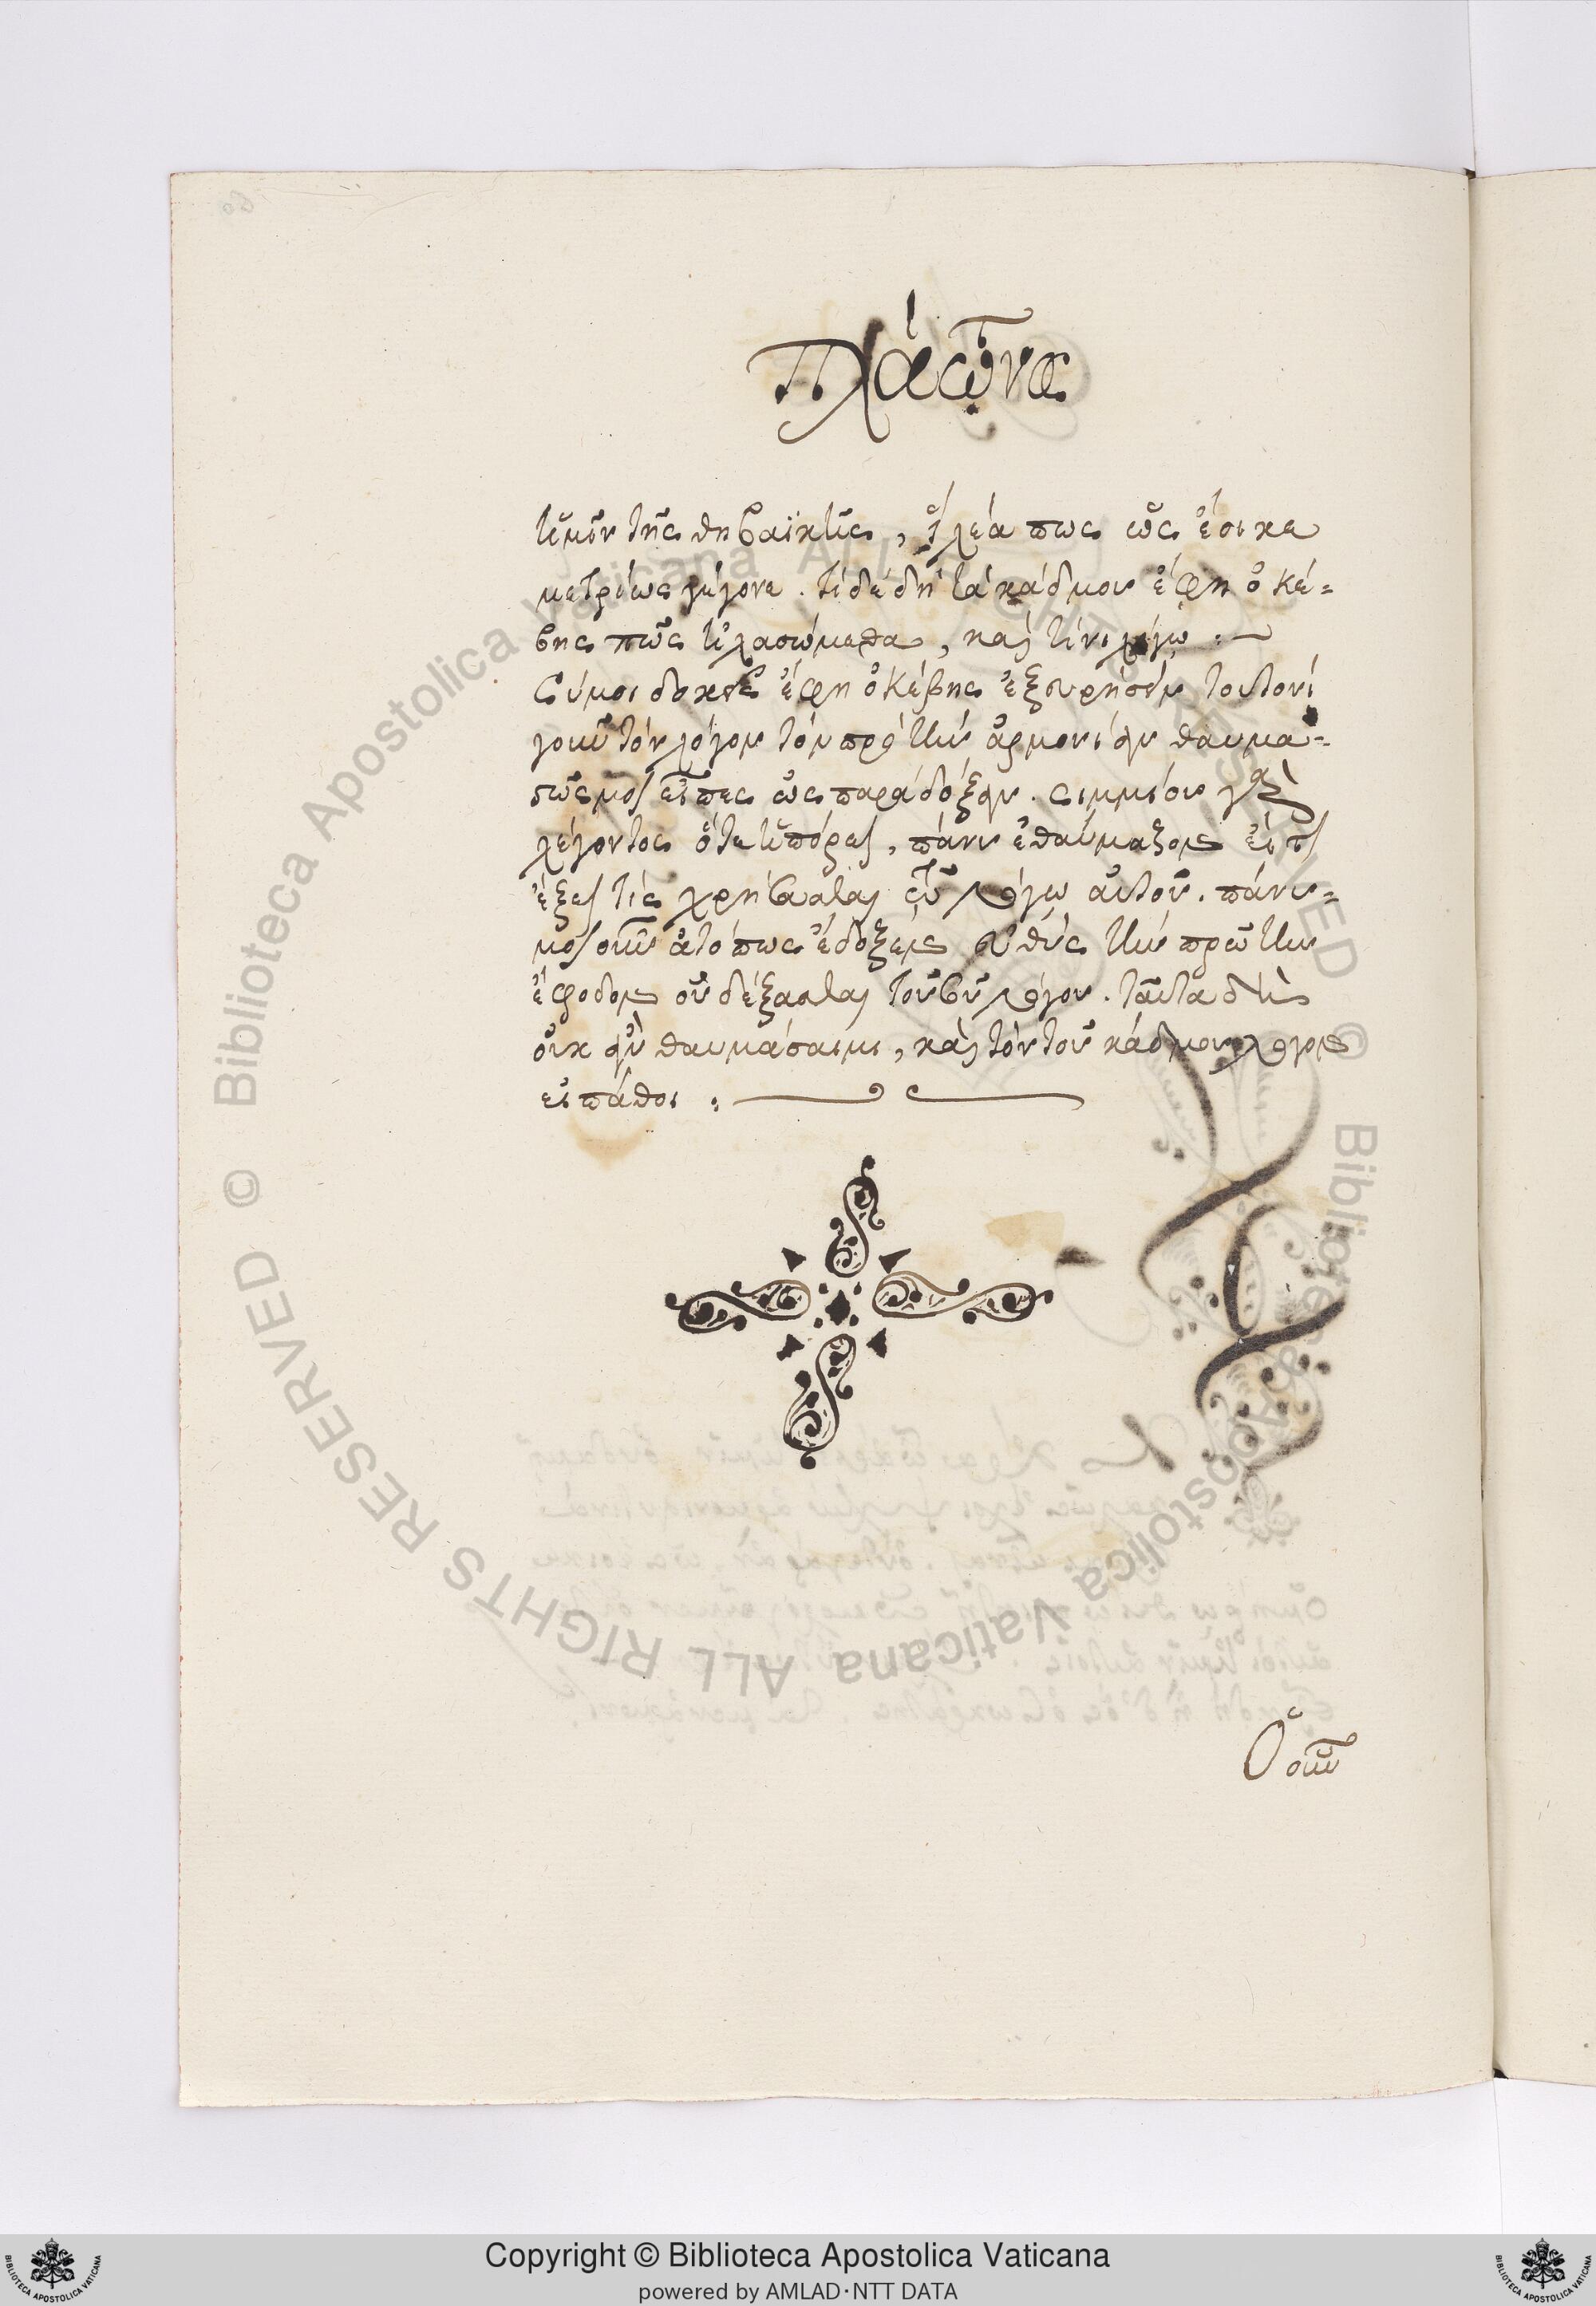 Πλάτωνος
ἡμῖν τῆς θηβαϊκῆς, ἵλεά πως ὡς ἔοικε
μετρίως γέγονε. τί δὲ δὴ τὰ κάδμου ἔφη ὁ κέ-
βης πῶς ἱλασώμεθα, καὶ τίνι λόγῳ :
Σύ μοι δοκεῖς ἔφη ὁ Κέβης ἐξευρήσειν τουτονὶ
γοῦν τὸν λόγον τὸν πρὸς τὴν ἁρμονίαν θαυμα-
στῶς μοι εἶπες ὡς παρὰ δόξαν. σιμμίου γὰρ
λέγοντος ὅτε ἠπόρει, πάνυ ἐθαύμαζον εἴ τι
ἕξει τις χρήσασθαι τῷ λόγῳ αὐτοῦ. πάνυ-
μοι οὖν ἀτόπως ἔδοξεν εὐθὺς τὴν πρώτην
ἔφοδον οὐ δέξασθαι τοῦ σοῦ λόγου. ταῦτα δὴ
οὐκ ἂν θαυμάσαιμι, καὶ τὸν τοῦ κάδμου λόγον
εἰ πάθοι :
Ὁ οὖν
Copyright © Biblioteca Apostolica Vaticana
powered by AMLAD·NTT DATA
© Biblioteca Apostolica Vaticana ALL RIGHTS RESERVED
© Biblioteca Apostolica Vaticana ALL RIGHTS RESERVED
BIBLIOTECA APOSTOLICA VATICANA
BIBLIOTECA APOSTOLICA VATICANA